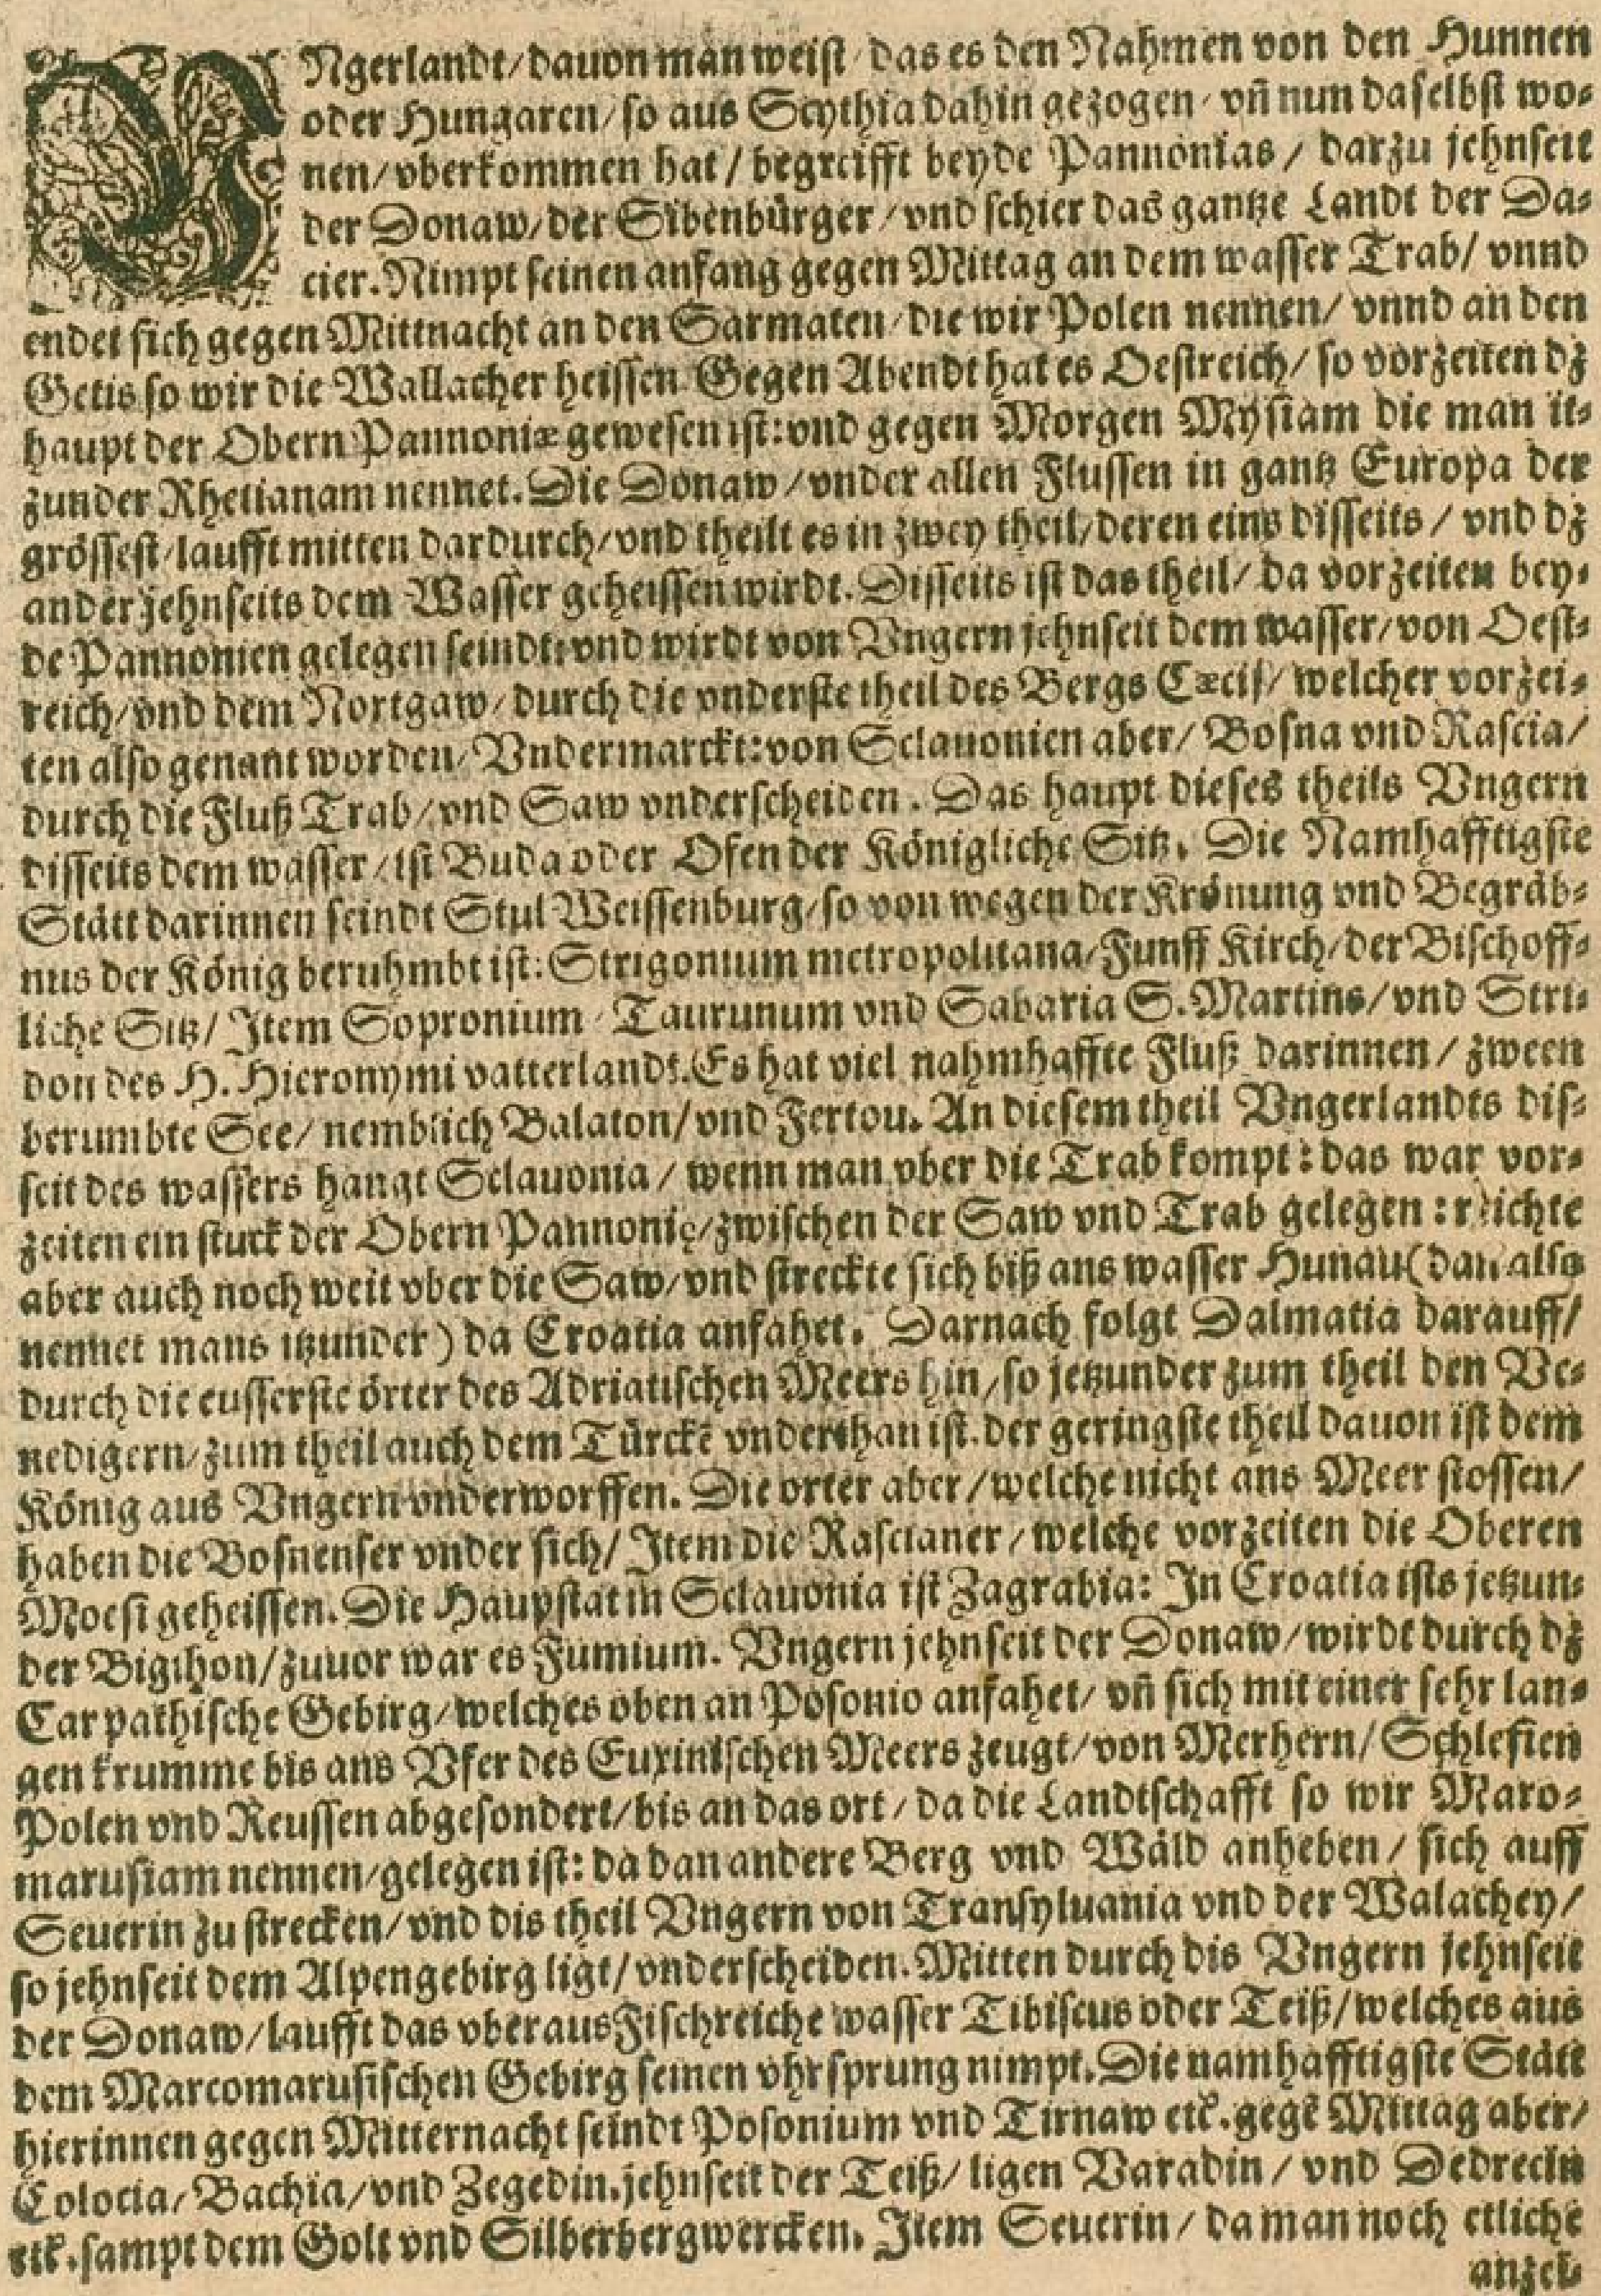 VNgerlandt/dauon man weist/das es den Nahmen von den Hunnen
oder Hungaren/so aus Scythia dahin gezogen/vñ nun daselbst wo⸗
nen/vberkommen hat/begreifft beyde Pannonias/darzu jehnseit
der Donaw/der Sibenbürger/vnd schier das gantze Landt der Da⸗
cier. Nimpt seinen anfang gegen Mittag an dem wasser Trab/vnnd
endet sich gegen Mittnacht an den Sarmaten/die wir Polen nennen/vnnd an den
Getis so wir die Wallacher heissen. Gegen Abendt hat es Oestreich/so vorzeiten dz
haupt der Obern Pannoniæ gewesen ist: vnd gegen Morgen Mysiam die man it⸗
zunder Rhetianam nennet. Die Donaw/vnder allen Flussen in gantz Europa der
grössest/laufft mitten dardurch/vnd theilt es in zwey theil/deren eins disseits/vnd dz
ander jehnseits dem Wasser geheissen wirdt. Disseits ist das theil/da vorzeiten bey⸗
de Pannonien gelegen seindt: vnd wirdt von Vngern jehnseit dem wasser/von Oest⸗
reich/vnd dem Nortgaw/durch die vnderste theil des Bergs Cæcij/welcher vorzei⸗
ten also genant worden/Vndermarckt: von Sclauonien aber/Bosna vnd Rascia/
durch die Fluß Trab/vnd Saw vnderscheiden. Das haupt dieses theils Vngern
disseits dem wasser/ist Buda oder Ofen der Königliche Sitz. Die Namhafftigste
Stätt darinnen seindt Stul Weissenburg/so von wegen der Krönung vnd Begräb⸗
nus der König beruhmbt ist: Strigonium metropolitana/Funff Kirch/der Bischoff⸗
liche Sitz/Item Sopronium/Taurunum vnd Sabaria S. Martins/vnd Stri⸗
don des H. Hieronymi vatterlandt. Es hat viel nahmhaffte Fluß darinnen/zween
berumbte See/nemblich Balaton/vnd Fertou. An diesem theil Vngerlandts dis⸗
seit des wassers hangt Sclauonia/wenn man vber die Trab kompt: das war vor⸗
zeiten ein stuck der Obern Pannonię/zwischen der Saw vnd Trab gelegen: reichte
aber auch noch weit vber die Saw/vnd streckte sich biß ans wasser Hunau (dan also
nennet mans itzunder) da Croatia anfahet. Darnach folgt Dalmatia darauff/
durch die eusserste örter des Adriatischen Meers hin/so jetzunder zum theil den Ve⸗
nedigern/zum theil auch dem Türckē vnderthan ist. der geringste theil dauon ist dem
König aus Vngern vnderworffen. Die orter aber/welche nicht ans Meer stossen/
haben die Bosnenser vnder sich/Item die Rascianer/welche vorzeiten die Oberen
Moesi geheissen. Die Haupstat in Sclauonia ist Zagrabia: In Croatia ists jetzun⸗
der Bigihon/zuuor war es Fumium. Vngern jehnseit der Donaw/wirdt durch dz
Carpathische Gebirg/welches oben an Posonio anfahet/vñ sich mit einer sehr lan⸗
gen krumme bis ans Vfer des Euxinischen Meers zeugt/von Merhern/Schlesien
Polen vnd Reussen abgesondert/bis an das ort/da die Landtschafft so wir Maro⸗
marusiam nennen/gelegen ist: da dan andere Berg vnd Wäld anheben/sich auff
Seuerin zu strecken/vnd dis theil Vngern von Transyluania vnd der Walachey/
so jehnseit dem Alpengebirg ligt/vnderscheiden. Mitten durch dis Vngern jehnseit
der Donaw/laufft das vberaus Fischreiche wasser Tibiscus oder Teiß/welches aus
dem Marcomarusischen Gebirg seinen vhrsprung nimpt. Die namhafftigste Stätt
hierinnen gegen Mitternacht seindt Posonium vnd Tirnaw etc. gegē Mittag aber/
Colocia/Bachia/vnd Zegedin. jehnseit der Teiß/ligen Varadin/vnd Debrecin
etc. sampt dem Golt vnd Silberbergwercken. Item Seuerin/da man noch etliche
anzei⸗